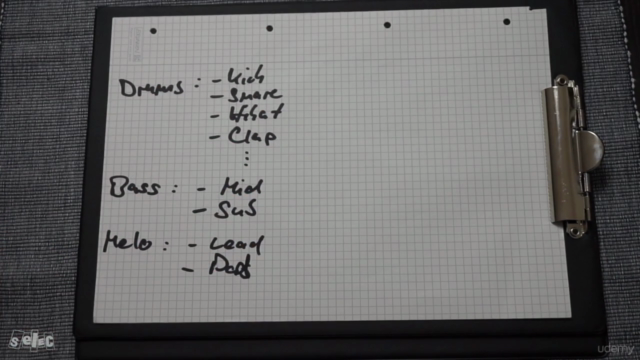 Drums : - Kick
- Snare
- Hihat
- Clap
⋮
Bass : - Mid
- Sub
Melo : - Lead
- Pads
selec
udemy